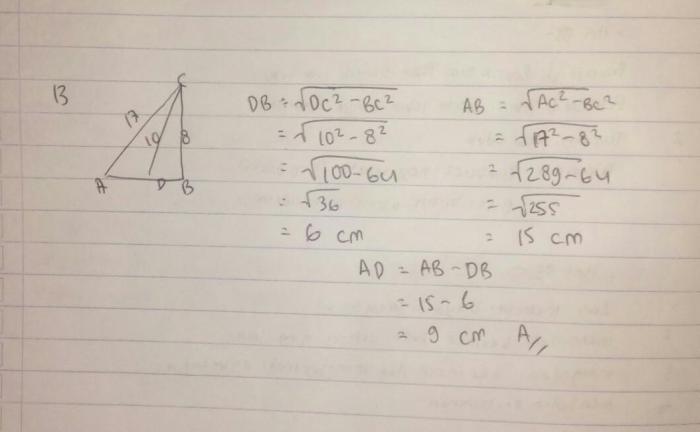 13
C
17
10
8
A D B
DB = √DC² - BC²
= √10² - 8²
= √100 - 64
= √36
= 6 cm
AB = √AC² - BC²
= √17² - 8²
= √289 - 64
= √255
= 15 cm
AD = AB - DB
= 15 - 6
= 9 cm A//